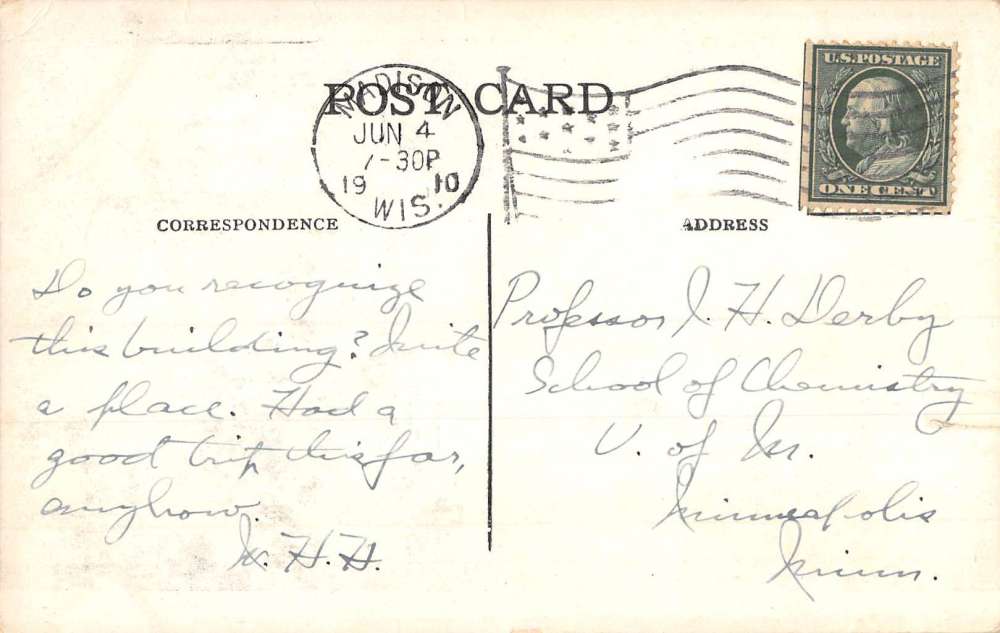 POST CARD
MADISON
JUN 4
7-30P
19 10
WIS.
U.S. POSTAGE
ONE CENT
CORRESPONDENCE
ADDRESS
Do you recognize
this building? Quite
a place. Had a
good trip this far,
anyhow.
H. H.
Professor I. H. Derby
School of Chemistry
U. of M.
Minneapolis
Minn.